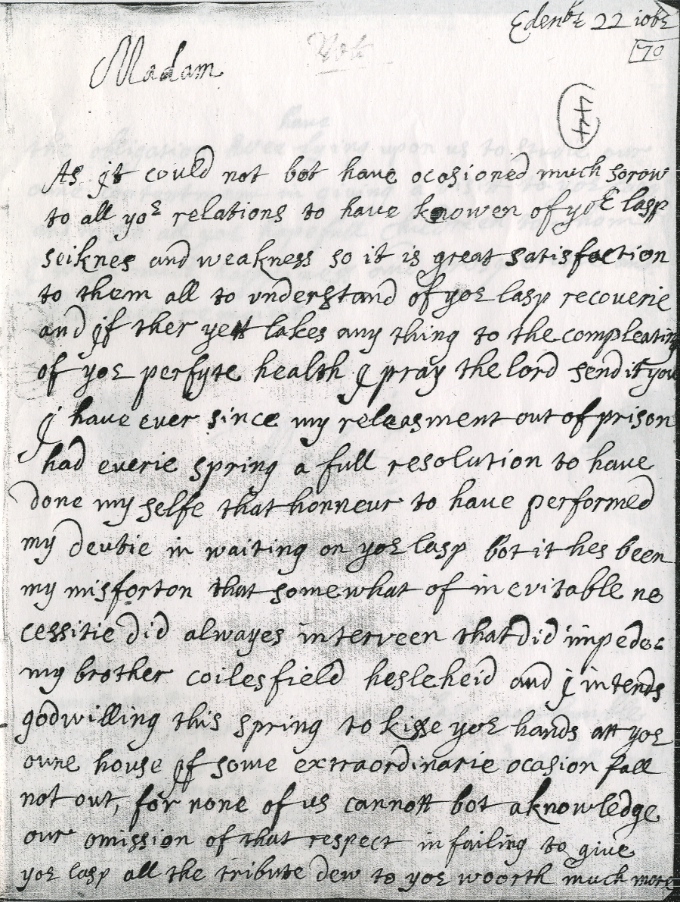 Edenbr 22 10br
70
Madam
44
As it could not bot have ocasioned much sorow
to all yor relations to have knowen of yor lasp
seiknes and weakness so it is great satisfaction
to them all to understand of yor lasp recoverie
and if ther yett lakes any thing to the compleating
of yor perfyte health I pray the lord send it you
I have ever since my releasment out of prison
had everie spring a full resolution to have
done my selfe that honneur to have performed
my deutie in waiting on yor lasp bot it hes been
my misforton that somewhat of inevitable ne
cessitie did alwayes interveen that did impede
my brother coilesfield hesleheid and I intends
godwilling this spring to kisse yor hands att yor
owne house if some extraordinarie ocasion fall
not out, for none of us cannott bot aknowledge
our omission of that respect in failing to give
yor lasp all the tribute dew to yor woorth much more